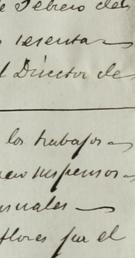 de Febrero del
s sesenta
l Director de
los trabajos
suspensos
suales
flores por el